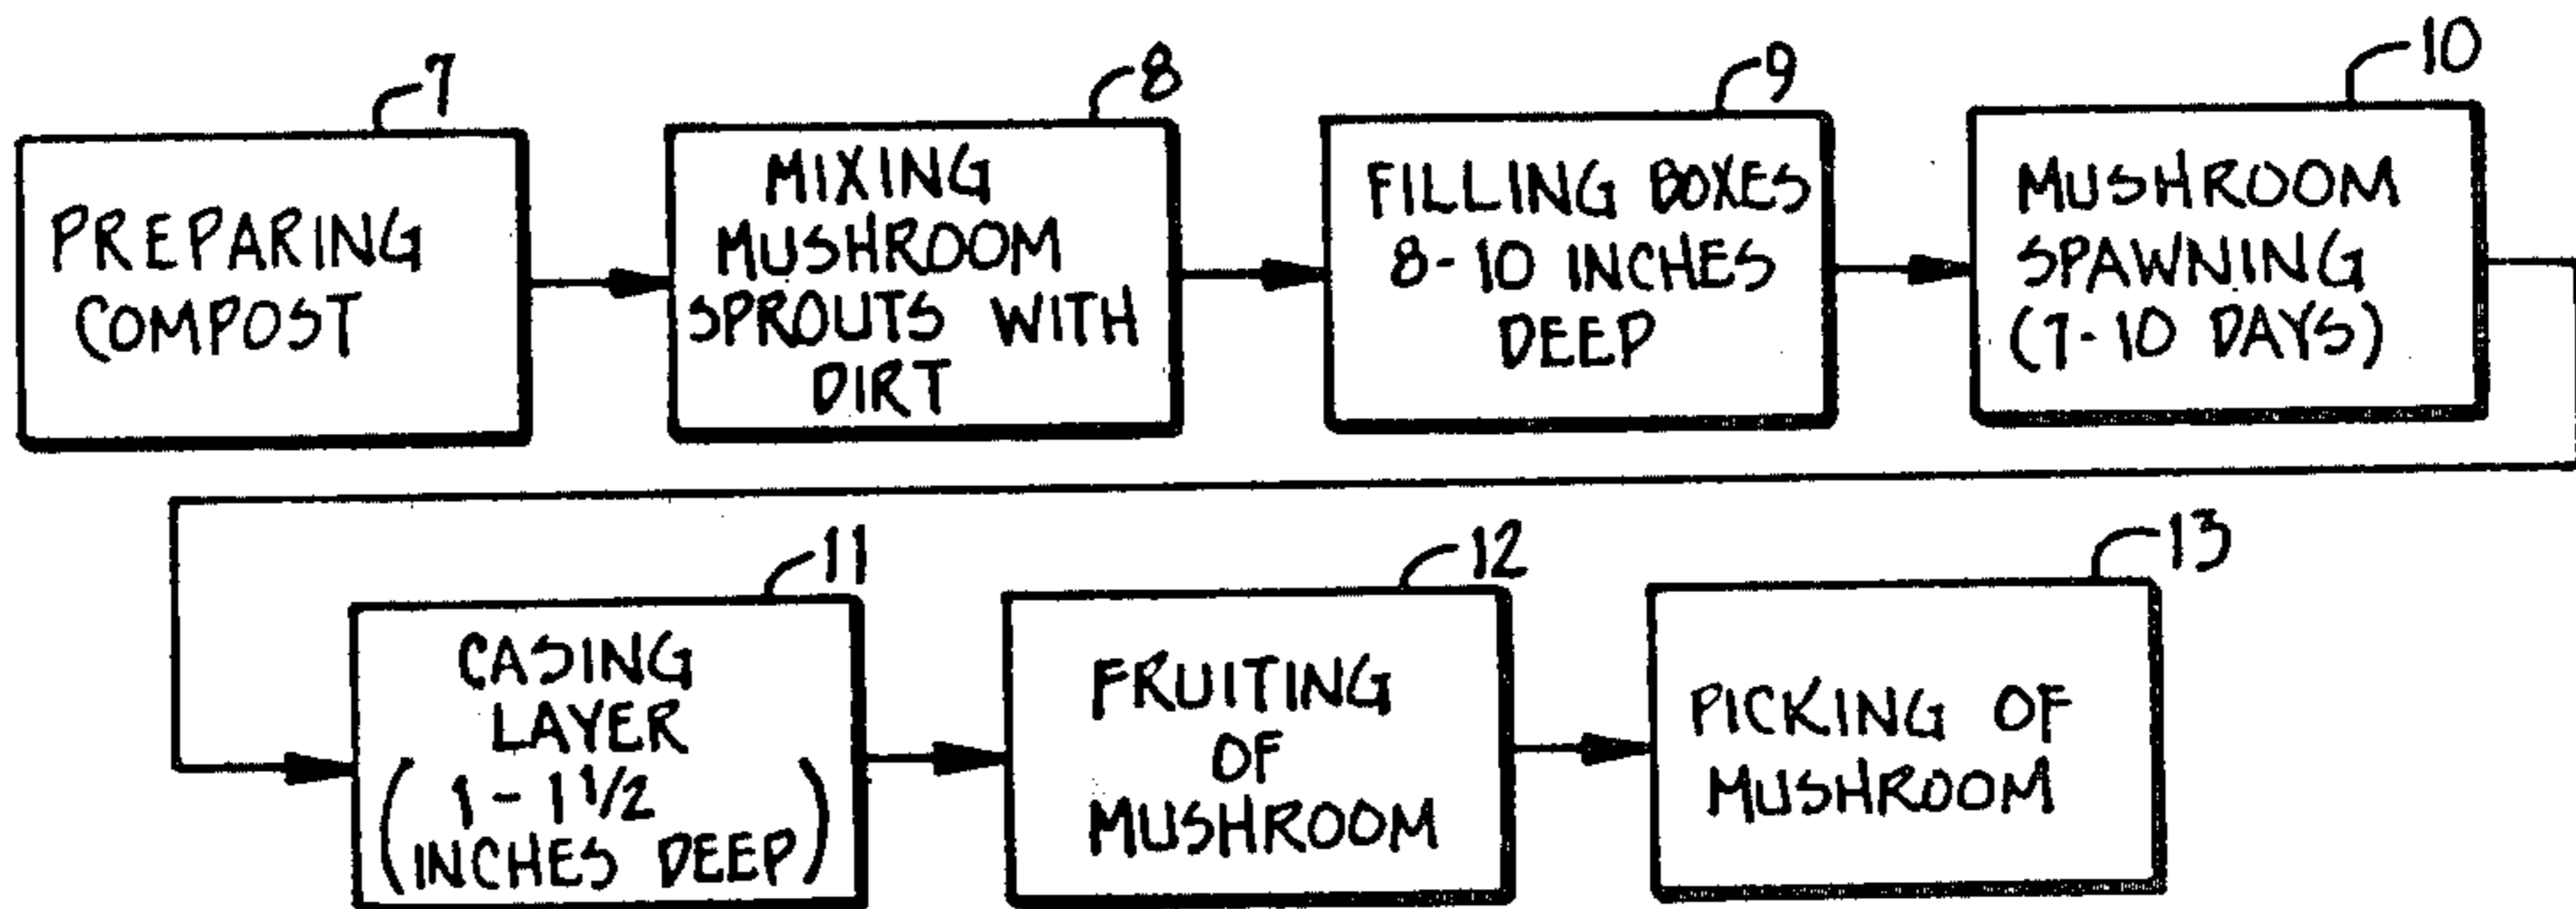 7
PREPARING
COMPOST
8
MIXING
MUSHROOM
SPROUTS WITH
DIRT
9
FILLING BOXES
8-10 INCHES
DEEP
10
MUSHROOM
SPAWNING
(7-10 DAYS)
11
CASING
LAYER
(1-1 1/2
INCHES DEEP)
12
FRUITING
OF
MUSHROOM
13
PICKING OF
MUSHROOM